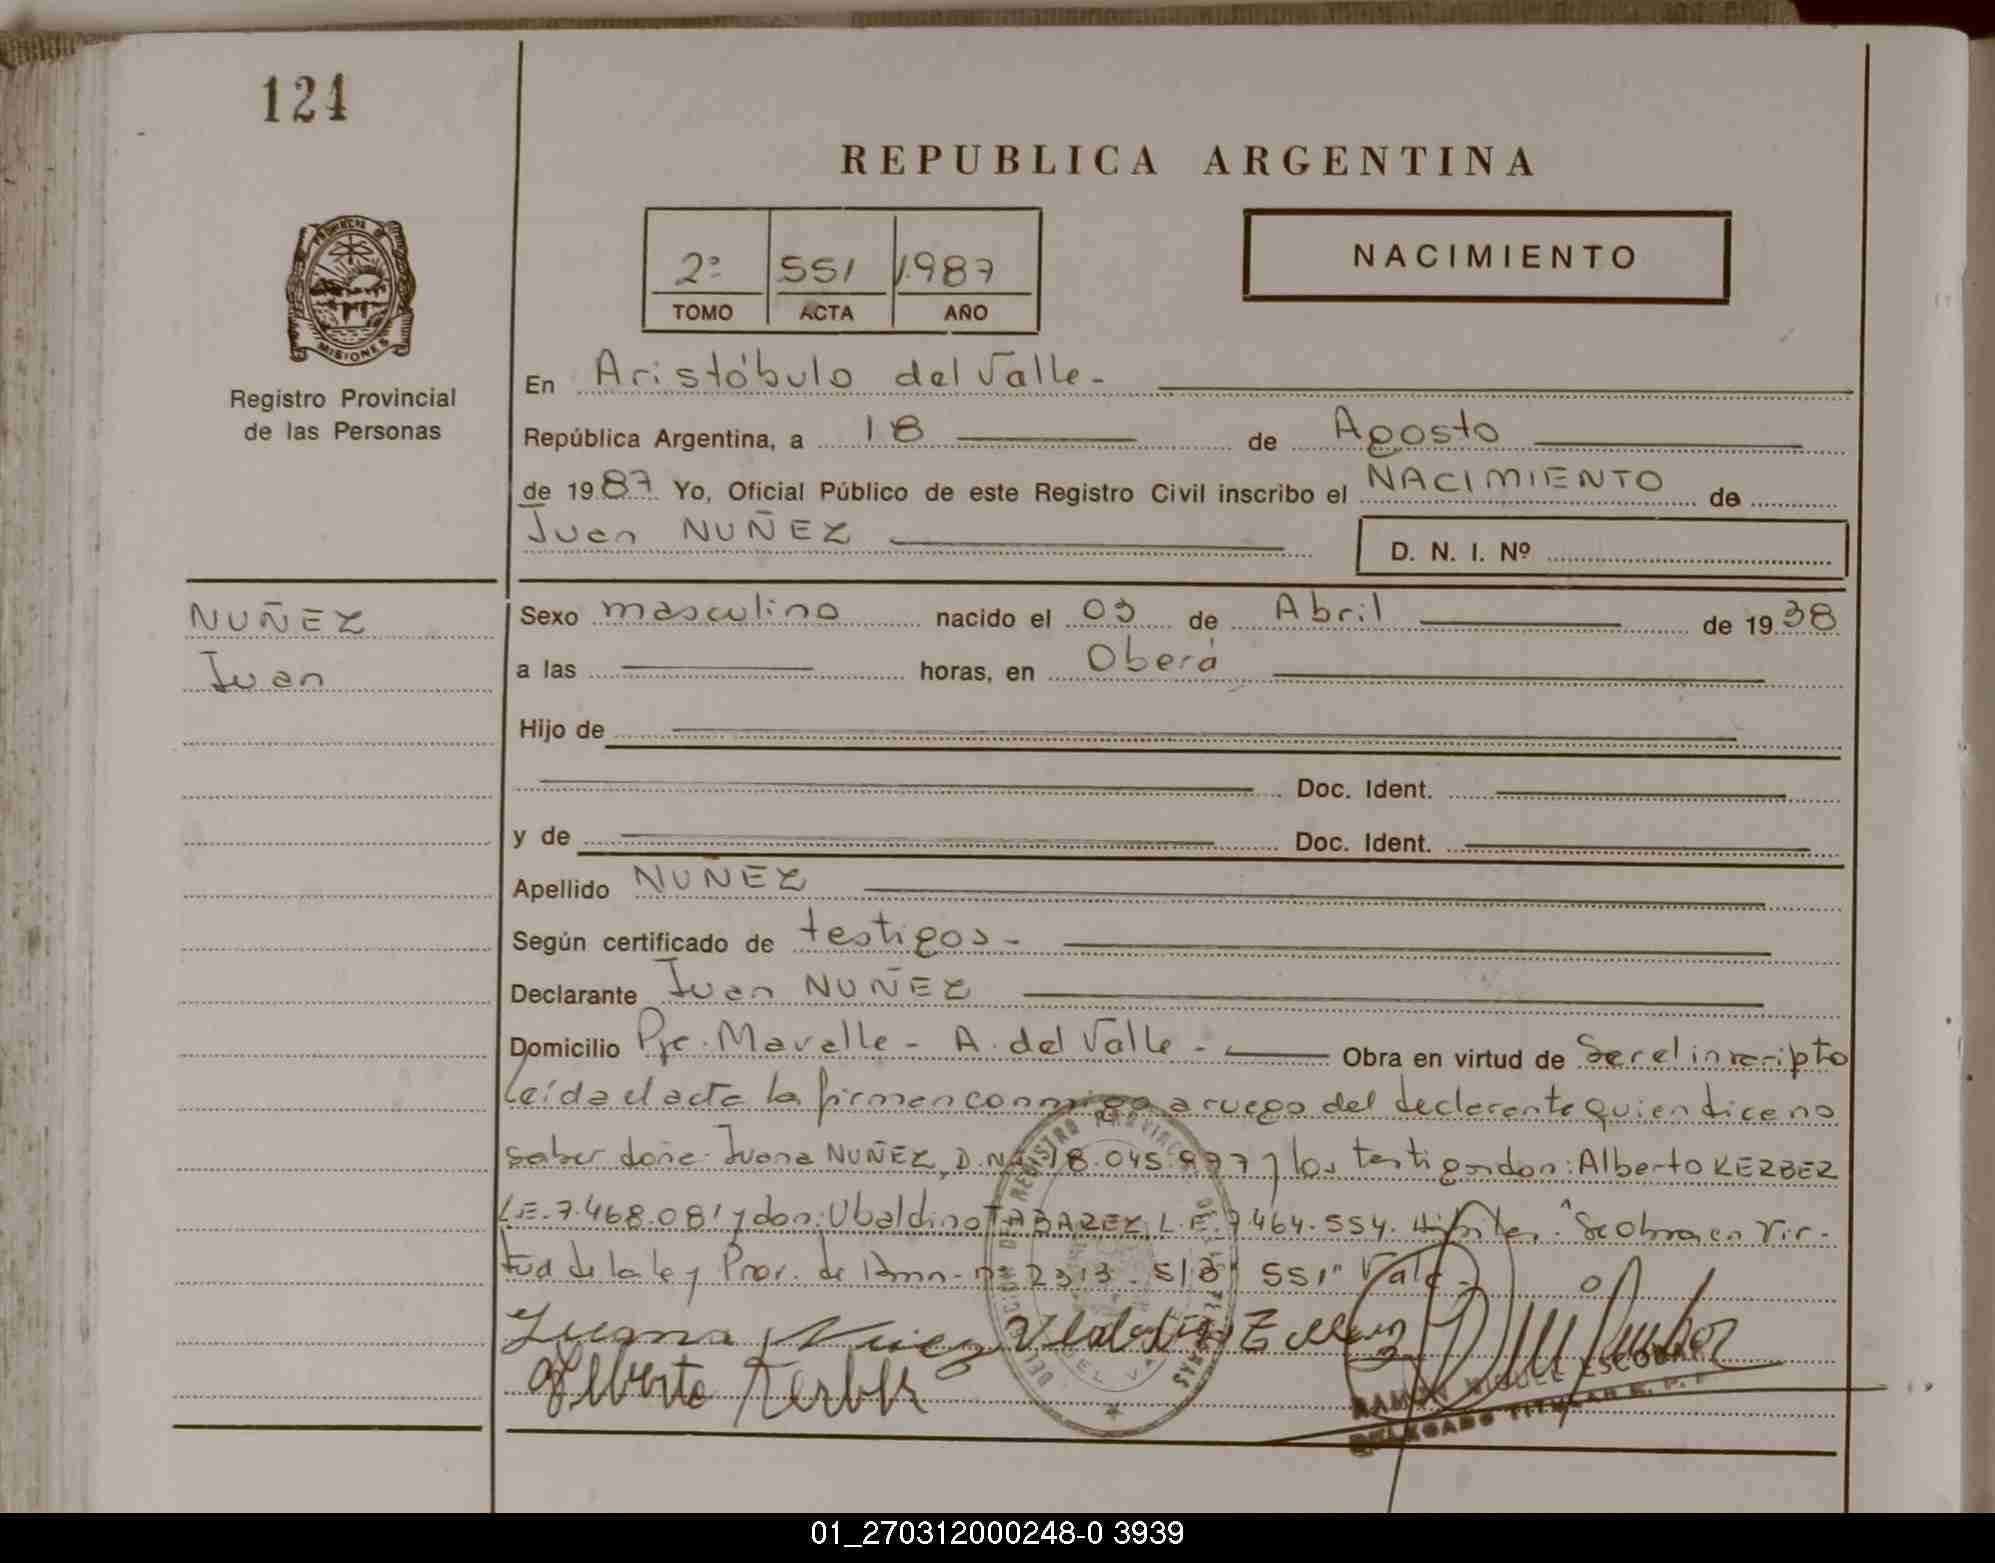 124
REPUBLICA ARGENTINA
PROVINCIA DE
MISIONES
Registro Provincial
de las Personas
2º 551 1.987
TOMO ACTA AÑO
NACIMIENTO
En Aristóbulo del Valle -
República Argentina, a 18 de Agosto
de 1987 Yo, Oficial Público de este Registro Civil inscribo el NACIMIENTO de
Juan NUÑEZ D. N. I. Nº
NUÑEZ
Juan
Sexo masculino nacido el 03 de Abril de 1938
a las horas, en Oberá
Hijo de
Doc. Ident.
y de Doc. Ident.
Apellido NUÑEZ
Según certificado de testigos -
Declarante Juan NUÑEZ
Domicilio Pje. Mavalle - A. del Valle - Obra en virtud de Ser el inscripto
Leída el acta la firman conmigo a ruego del declarante quien dice no
saber doña: Juana NUÑEZ, D.N.I. 18.045.977 y los testigos don: Alberto KERBER
L.E. 7.468.081 y don: Ubaldino TABAREZ, L.E. 7.464.554. "Se obra en vir-
tud de la ley Prov. de Amn. nº 2313. S/B "551" Vale -
Juana Nuñez
Alberto Kerber
RAMON MIGUEL ESCOBAR
DELEGADO TITULAR R. P. P.
01_270312000248-0 3939